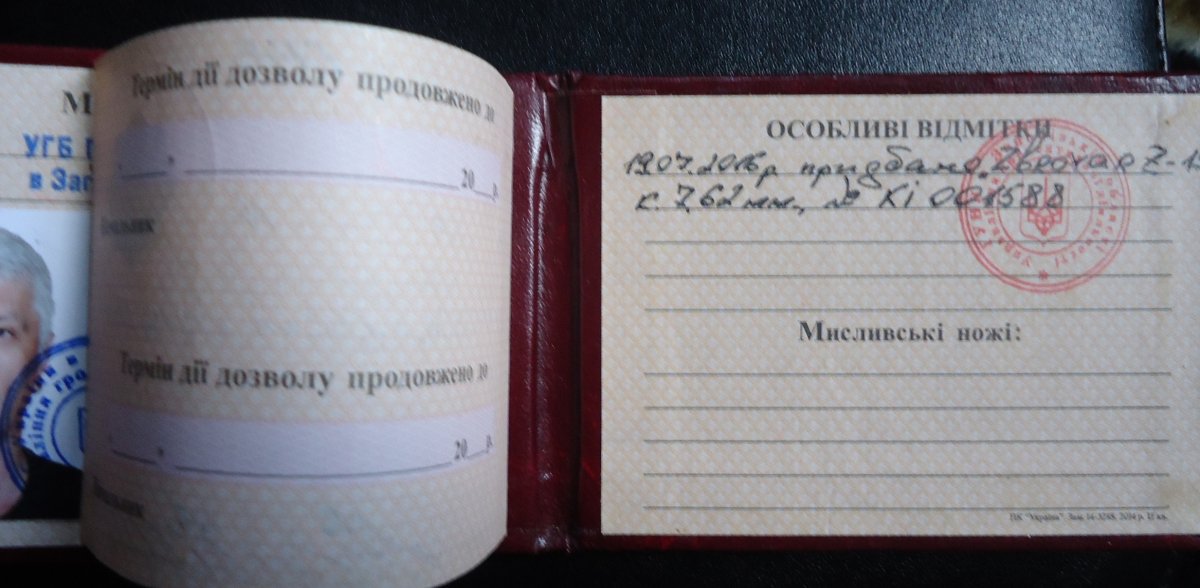 М
УГБ
в Зап
Термін дії дозволу продовжено до
20 р.
Начальник
Термін дії дозволу продовжено до
20 р.
Начальник
ОСОБЛИВІ ВІДМІТКИ
19.07.2016р придбано
к. 7,62мм, № КІ 001588
Мисливські ножі:
ПК "Україна". Зам. 14-3288. 2014 р. ІІ кв.